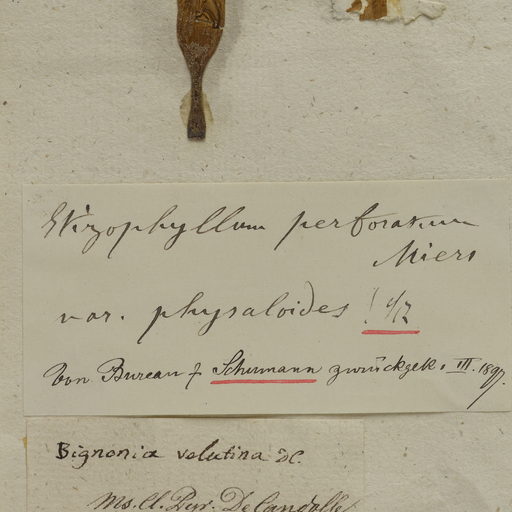 Stizophyllum perforatum
Miers
var. physaloides !
Von Bureau f Schumann zurückgek. III. 1897.
Bignonia velutina DC.
Ms. Cl. Pyr. De Candolle